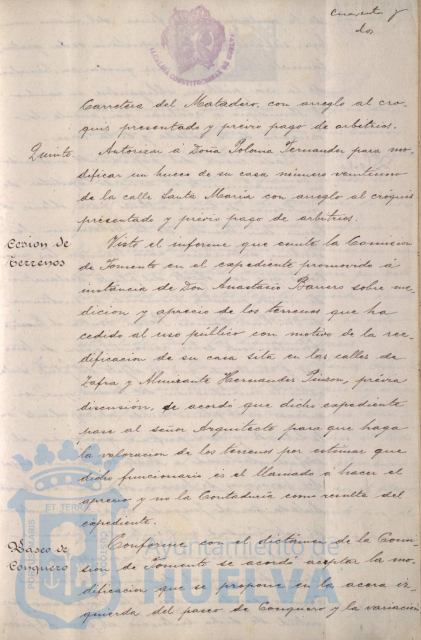 cuarenta y
dos
ALCALDIA CONSTITUCIONAL DE HUELVA
Carretera del Matadero, con arreglo al cro-
quis presentado y previo pago de arbitrios.
Quinto. Autorizar á Doña Paloma Fernandez para mo-
dificar un hueco de su casa número veintiuno
de la calle Santa María con arreglo al cróquis
presentado y previo pago de arbitrios.
Cesion de
Terrenos
Visto el informe que emite la Comision
de Fomento en el expediente promovido á
instancia de Don Anastasio Barrero sobre me-
dicion y aprecio de los terrenos que ha
cedido al uso público con motivo de la ree-
dificacion de su casa sita en las calles de
Zafra y Almirante Hernandez Pinzon, prévia
discusión, se acordó que dicho expediente
pase al señor Arquitecto para que haga
la valoracion de los terrenos por estimar que
dicho funcionario es el llamado á hacer el
aprecio y no la Contaduría como resulta del
expediente.
Paseo de
Conquero
Conforme con el dictámen de la Comi-
sion de Fomento se acordó aceptar la mo-
dificacion que se propone en la acera iz-
quierda del paseo de Conquero y la variación
PORTUS MARIS
ET TERRAE
CUSTODIA
Ayuntamiento de
HUELVA